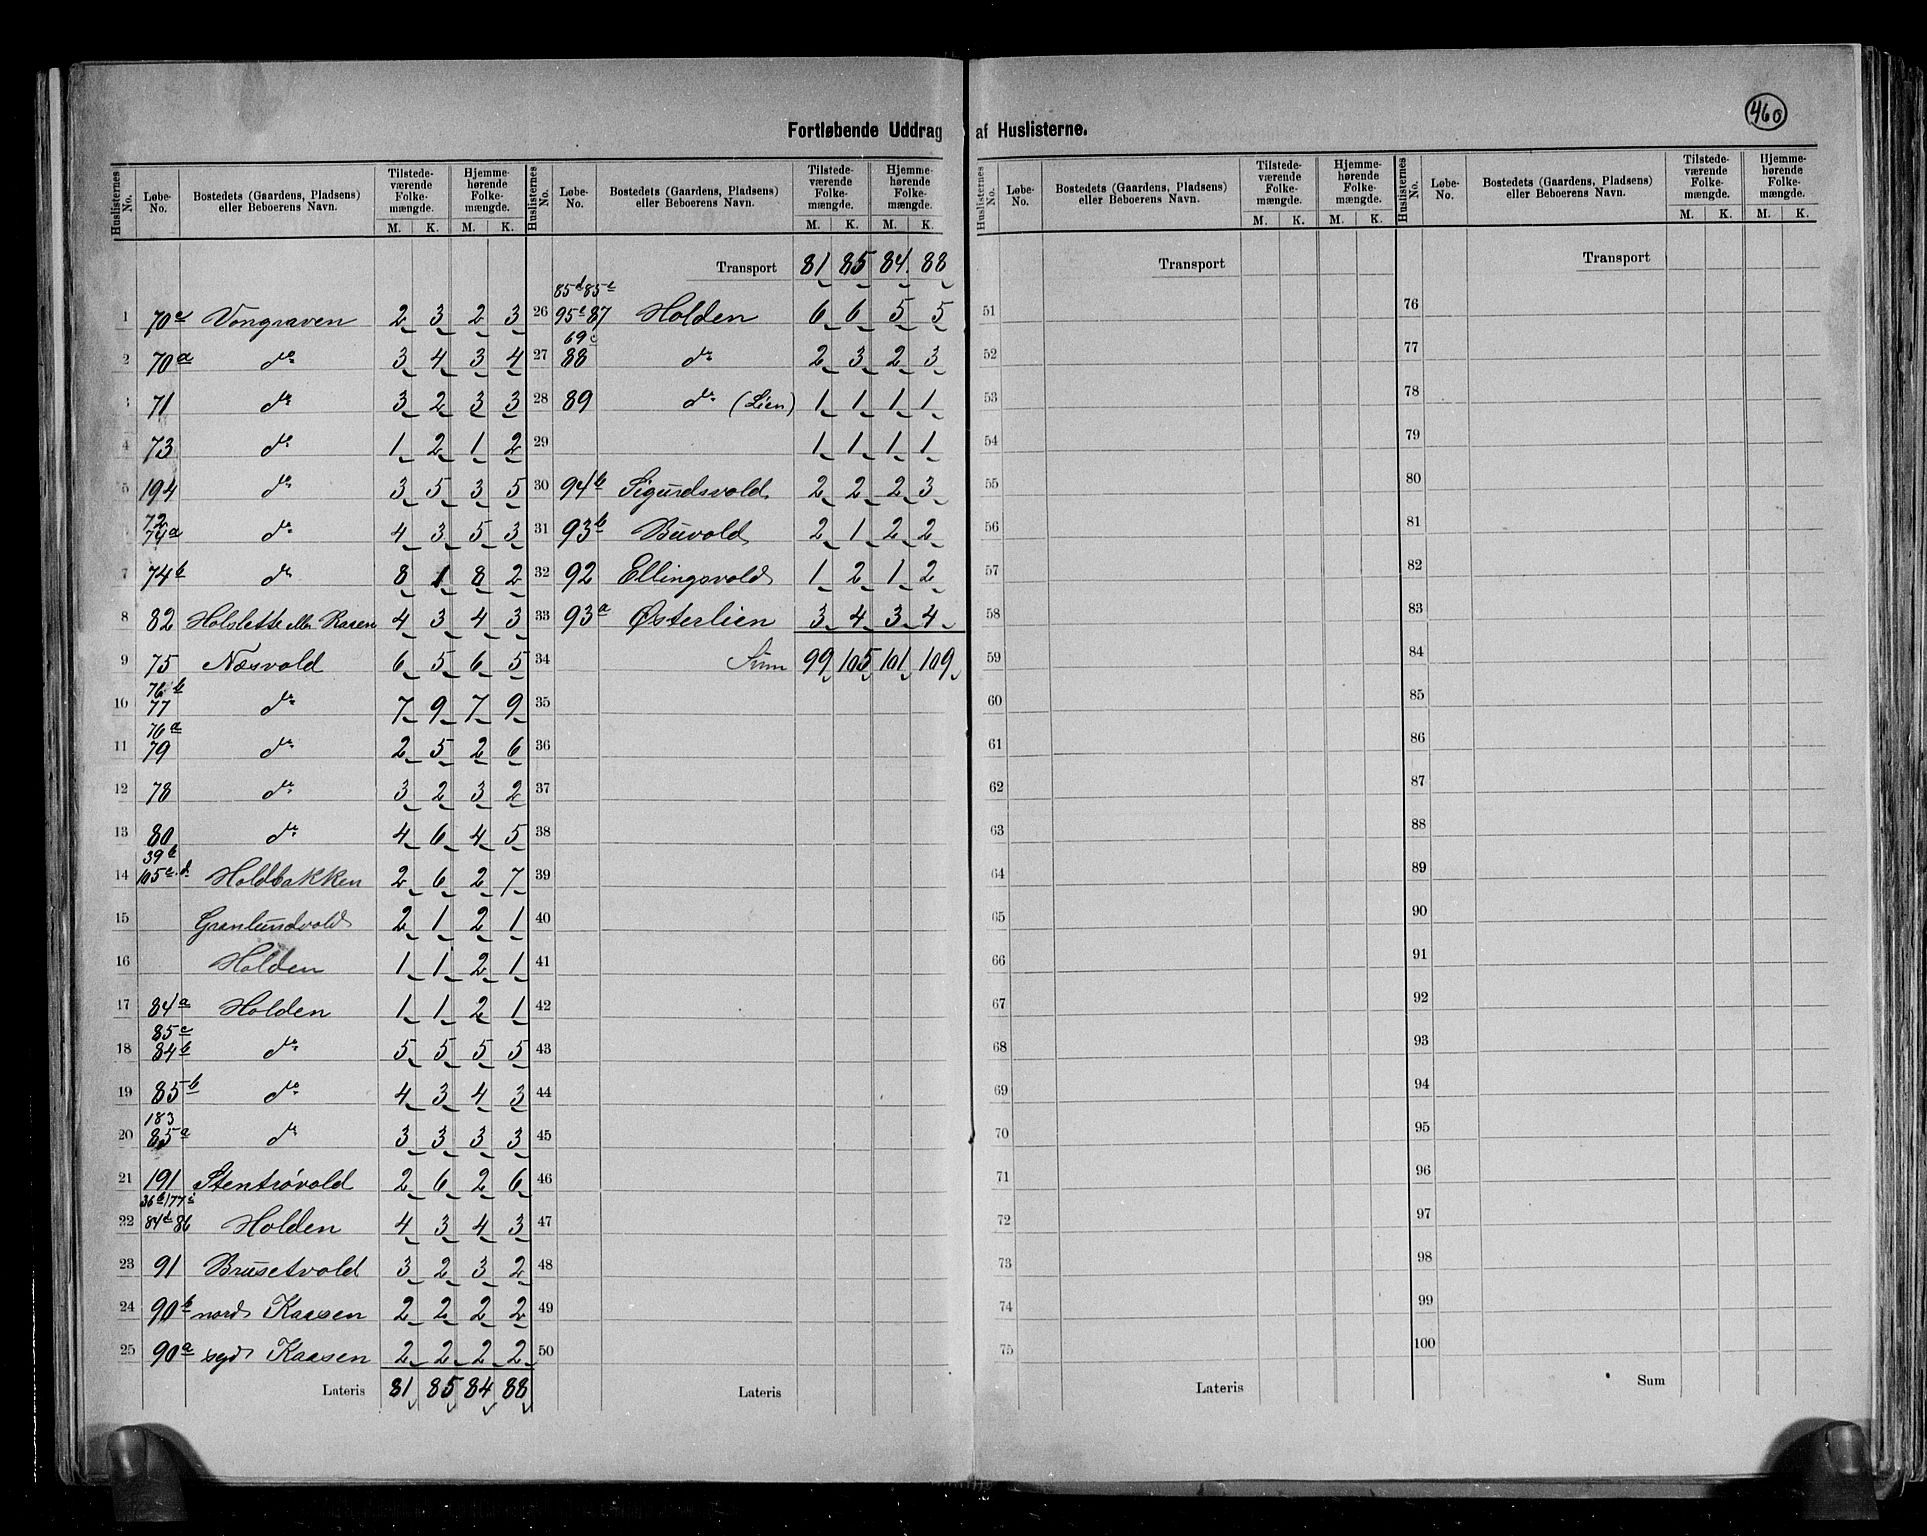 460
Fortløbende Uddrag af Huslisterne.
Huslisternes No. Løbe-No. Bostedets (Gaardens, Pladsens) eller Beboerens Navn. Tilstede-værende Folke-mængde. M. K. Hjemme-hørende Folke-mængde. M. K.
1 70c Vongraven 2 3 2 3
2 70a do 3 4 3 4
3 71 do 3 2 3 3
4 73 do 1 2 1 2
5 194 do 3 5 3 5
72 74a do 4 3 5 3
7 74b do 8 1 8 2
8 82 Holslette eller Raaen 4 3 4 3
9 75 Næsvold 6 5 6 5
10 76b 77 do 7 9 7 9
11 76a 79 do 2 5 2 6
12 78 do 3 2 3 2
13 80 do 4 6 4 5
14 39b 105c.d Holdbakken 2 6 2 7
15 Granlundvold 2 1 2 1
16 Holden 1 1 2 1
17 84a Holden 1 1 2 1
18 85c 84b do 5 5 5 5
19 85b do 4 3 4 3
20 183 85a do 3 3 3 3
21 191 Stentrøvold 2 6 2 6
22 36b 177i 84d 86 Holden 4 3 4 3
23 91 Brusetvold 3 2 3 2
24 90b nord Kaasen 2 2 2 2
25 90a syd Kaasen 2 2 2 2
Lateris 81 85 84 88
Huslisternes No. Løbe-No. Bostedets (Gaardens, Pladsens) eller Beboerens Navn. Tilstede-værende Folke-mængde. M. K. Hjemme-hørende Folke-mængde. M. K.
Transport 81 85 84 88
26 85d 85e 95e 87 Holden 6 6 5 5
27 69c 88 do 2 3 2 3
28 89 do (Lien) 1 1 1 1
29 1 1 1 1
30 94b Sigurdsvold 2 2 2 3
31 93b Buvold 2 1 2 2
32 92 Ellingsvold 1 2 1 2
33 93a Østerlien 3 4 3 4
34 Sum 99 105 101 109
35
36
37
38
39
40
41
42
43
44
45
46
47
48
49
50
Lateris
Huslisternes No. Løbe-No. Bostedets (Gaardens, Pladsens) eller Beboerens Navn. Tilstede-værende Folke-mængde. M. K. Hjemme-hørende Folke-mængde. M. K.
Transport
51
52
53
54
55
56
57
58
59
60
61
62
63
64
65
66
67
68
69
70
71
72
73
74
75
Lateris
Huslisternes No. Løbe-No. Bostedets (Gaardens, Pladsens) eller Beboerens Navn. Tilstede-værende Folke-mængde. M. K. Hjemme-hørende Folke-mængde. M. K.
Transport
76
77
78
79
80
81
82
83
84
85
86
87
88
89
90
91
92
93
94
95
96
97
98
99
100
Sum